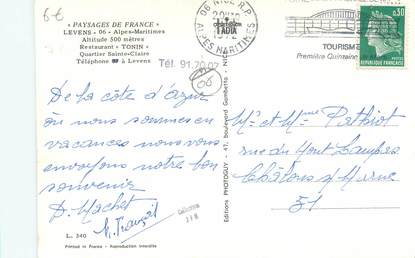 6€
« PAYSAGES DE FRANCE »
LEVENS - 06 - Alpes-Maritimes
Altitude 500 mètres
Restaurant « TONIN »
Quartier Sainte-Claire
Téléphone à Levens
Tél. 91.70.07
06
06 NICE R.P.
1972
ALPES MARITIMES
TOURISM
Première Quinzaine
0,30
REPUBLIQUE FRANÇAISE
De la côte d'azur
où nous sommes en
vacances nous vous
envoyons notre bon
souvenir
D. Machet
L. 340
Printed in France - Reproduction interdite
Editions PHOTOGUY - 41, boulevard Gambetta - NI
Collection
378
Mr et Mme Pathiot
rue du Mont
Châlons s/ Marne
51